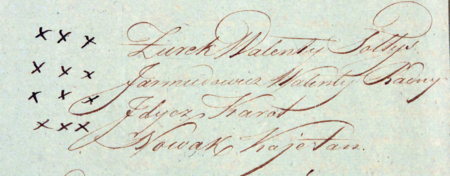 x x x Żurek Walenty Sołtys.
x x x Jarmudowicz Walenty Radny
x x x Karol
x x x Nowak Kajetan.